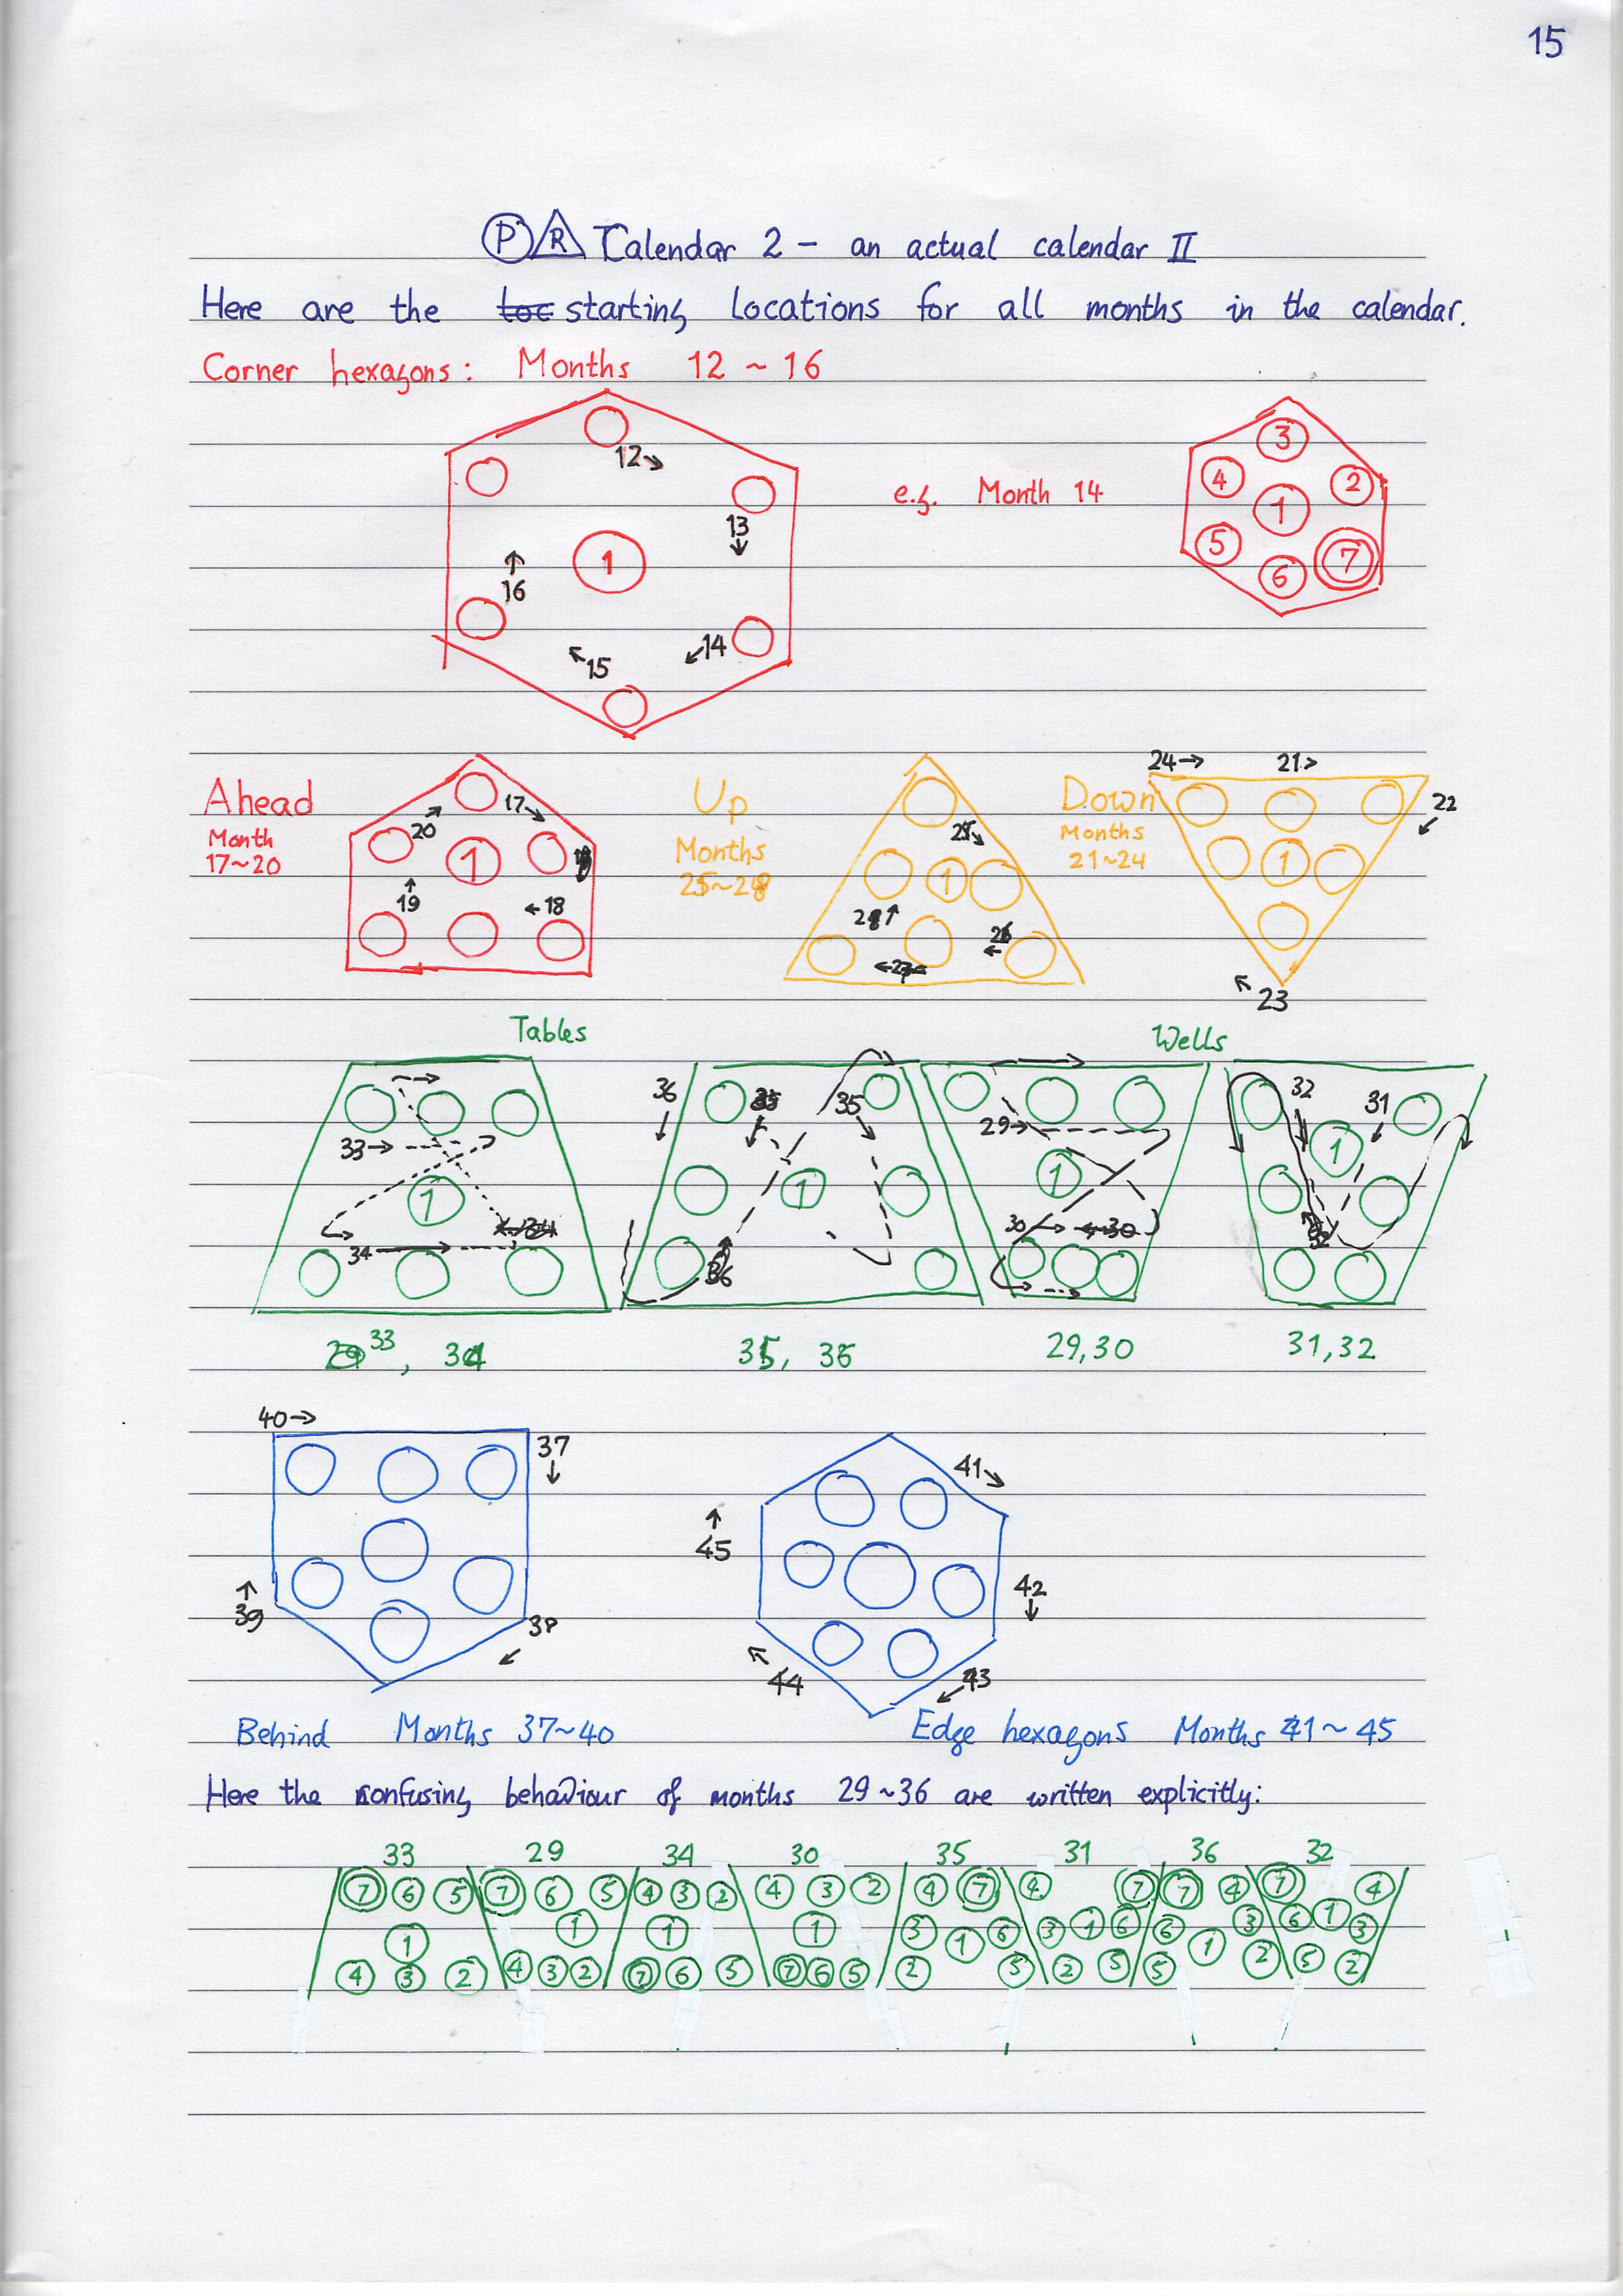 15
P R Calendar 2 - an actual calendar II
Here are the toc starting locations for all months in the calendar.
Corner hexagons: Months 12 ~ 16
12→
13 ↓
1
16 ↑
←15
14
e.g. Month 14
3
4 2
1
5 7
6
Ahead
Month
17~20
20 17
1
19 ←18
Up
Months
25~28
25
1
28↑ 26 ←
←27
Down
Months
21~24
24→ 21>
22
1
23
Tables
33→
1
34
33, 34
36 ↓ 35
1
36
35, 36
Wells
29→
1
30 ←30
29,30
32 31
1
32
31,32
40→
37 ↓
39 ↑ 38
Behind Months 37~40
41
45 ↑
42 ↓
44 43
Edge hexagons Months 41~45
Here the confusing behaviour of months 29~36 are written explicitly:
33 29 34 30 35 31 36 32
7 6 5 7 6 5 4 3 2 4 3 2 4 7 4 7 7 4 7 4
1 1 1 1 3 1 6 3 1 6 6 1 3 6 1 3
4 3 2 4 3 2 7 6 5 7 6 5 2 5 2 5 5 2 5 2